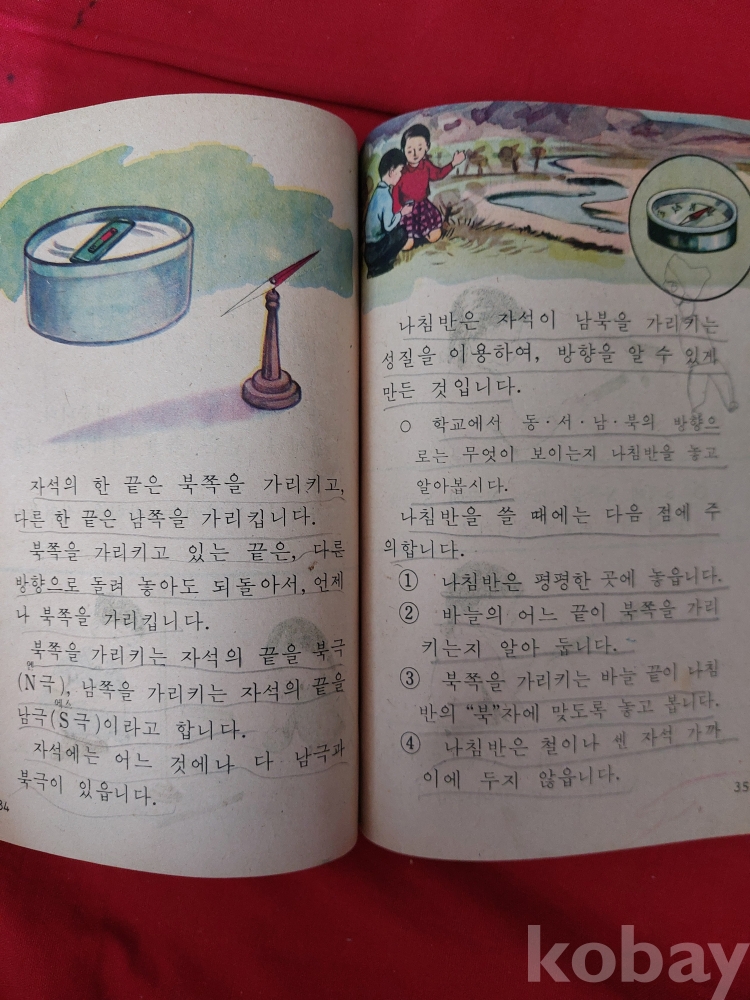 자석의 한 끝은 북쪽을 가리키고,
다른 한 끝은 남쪽을 가리킵니다.
북쪽을 가리키고 있는 끝은, 다른
방향으로 돌려 놓아도 되돌아서, 언제
나 북쪽을 가리킵니다.
북쪽을 가리키는 자석의 끝을 북극
엔
(N극), 남쪽을 가리키는 자석의 끝을
에스
남극(S극)이라고 합니다.
자석에는 어느 것에나 다 남극과
북극이 있읍니다.
34
나침반은 자석이 남북을 가리키는
성질을 이용하여, 방향을 알 수 있게
만든 것입니다.
○ 학교에서 동·서·남·북의 방향으
로는 무엇이 보이는지 나침반을 놓고
알아봅시다.
나침반을 쓸 때에는 다음 점에 주
의합니다.
① 나침반은 평평한 곳에 놓읍니다.
② 바늘의 어느 끝이 북쪽을 가리
키는지 알아 둡니다.
③ 북쪽을 가리키는 바늘 끝이 나침
반의 “북”자에 맞도록 놓고 봅니다.
④ 나침반은 철이나 센 자석 가까
이에 두지 않읍니다.
35
kobay